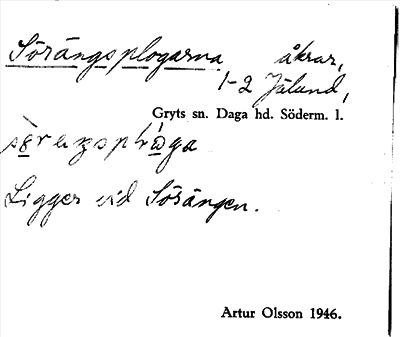 Sörängsplogarna åkrar,
1-2 Jälund,
Gryts sn. Daga hd. Söderm. l.
Ligger vid Sörängen.
Artur Olsson 1946.